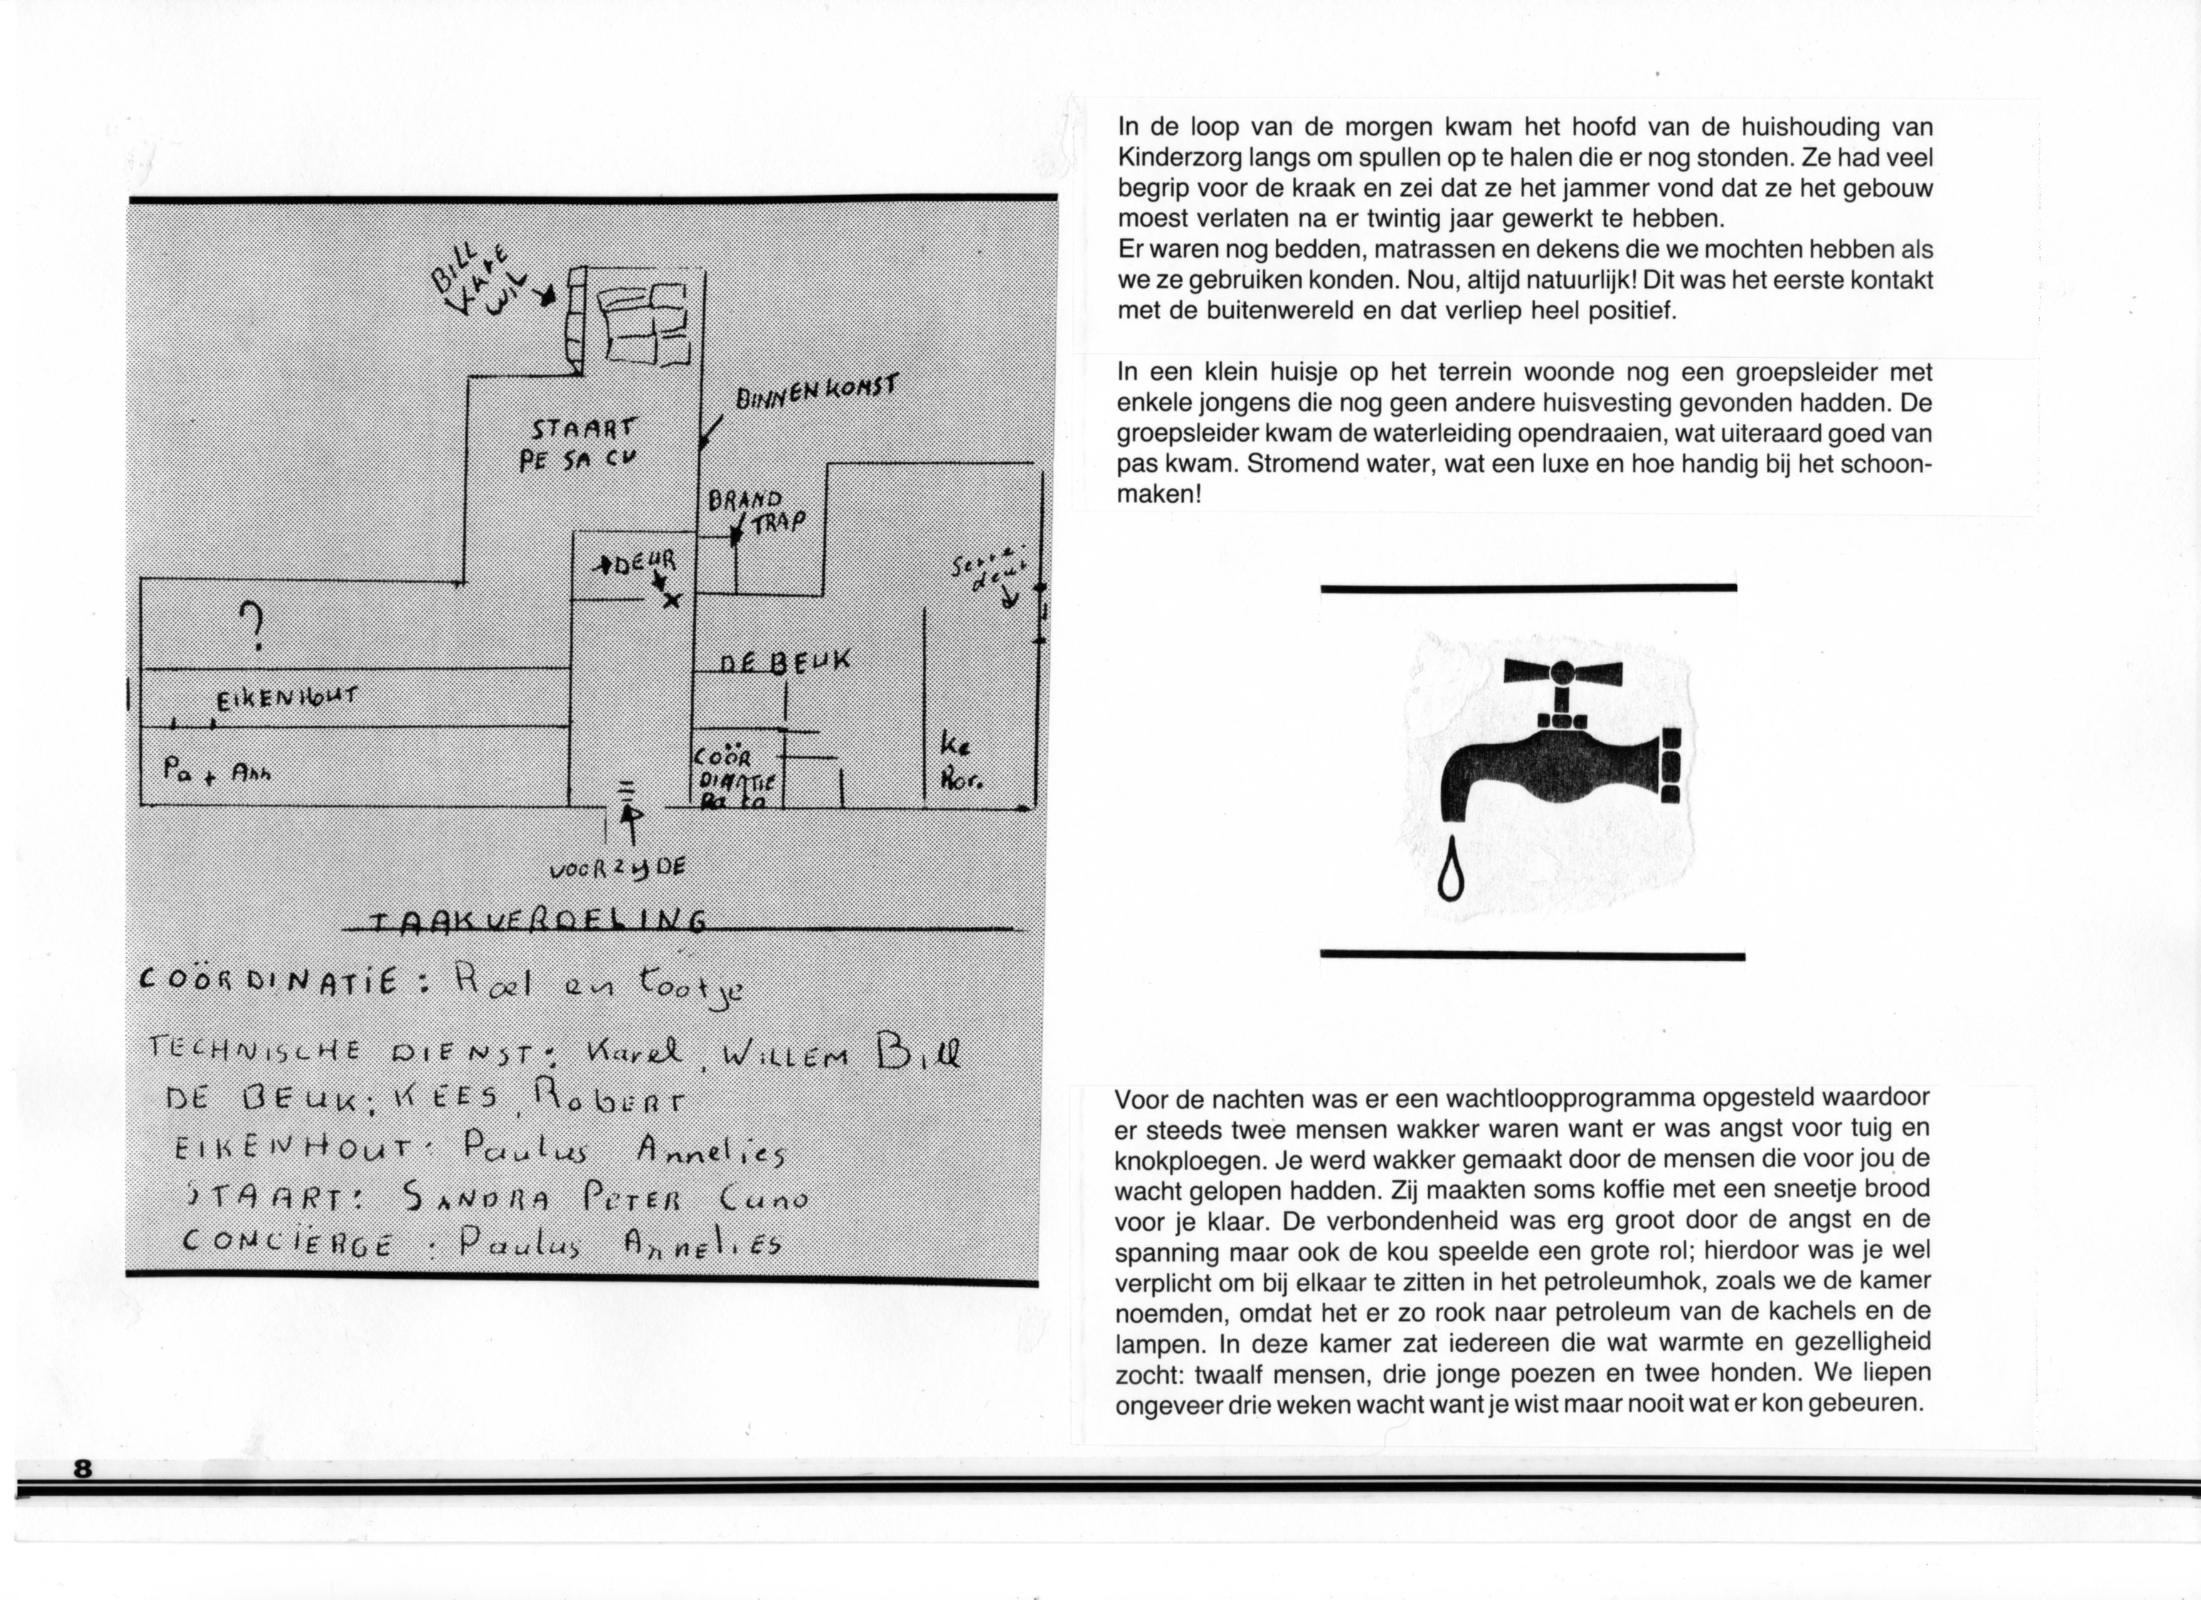 BILL
KARE
WIL
BINNENKOMST
STAART
PE SA CU
BRAND
TRAP
DEUR
Serre.
deur
?
DE BEUK
EIKENHOUT
COÖR
DINATIE
Ro to
Ke
Ror.
Pa + Ann
VOORZYDE
TAAKVERDELING
COÖRDINATIE: Roel en tootje
TECHNISCHE DIENST: Karel, WILLEM Bill
DE BEUK: KEES, RobERT
EIKENHOUT: Paulus Annelies
STAART: SANDRA PETER Cuno
CONCIËRGE: Paulus ANNELIES
In de loop van de morgen kwam het hoofd van de huishouding van
Kinderzorg langs om spullen op te halen die er nog stonden. Ze had veel
begrip voor de kraak en zei dat ze het jammer vond dat ze het gebouw
moest verlaten na er twintig jaar gewerkt te hebben.
Er waren nog bedden, matrassen en dekens die we mochten hebben als
we ze gebruiken konden. Nou, altijd natuurlijk! Dit was het eerste kontakt
met de buitenwereld en dat verliep heel positief.
In een klein huisje op het terrein woonde nog een groepsleider met
enkele jongens die nog geen andere huisvesting gevonden hadden. De
groepsleider kwam de waterleiding opendraaien, wat uiteraard goed van
pas kwam. Stromend water, wat een luxe en hoe handig bij het schoon-
maken!
Voor de nachten was er een wachtloopprogramma opgesteld waardoor
er steeds twee mensen wakker waren want er was angst voor tuig en
knokploegen. Je werd wakker gemaakt door de mensen die voor jou de
wacht gelopen hadden. Zij maakten soms koffie met een sneetje brood
voor je klaar. De verbondenheid was erg groot door de angst en de
spanning maar ook de kou speelde een grote rol; hierdoor was je wel
verplicht om bij elkaar te zitten in het petroleumhok, zoals we de kamer
noemden, omdat het er zo rook naar petroleum van de kachels en de
lampen. In deze kamer zat iedereen die wat warmte en gezelligheid
zocht: twaalf mensen, drie jonge poezen en twee honden. We liepen
ongeveer drie weken wacht want je wist maar nooit wat er kon gebeuren.
8